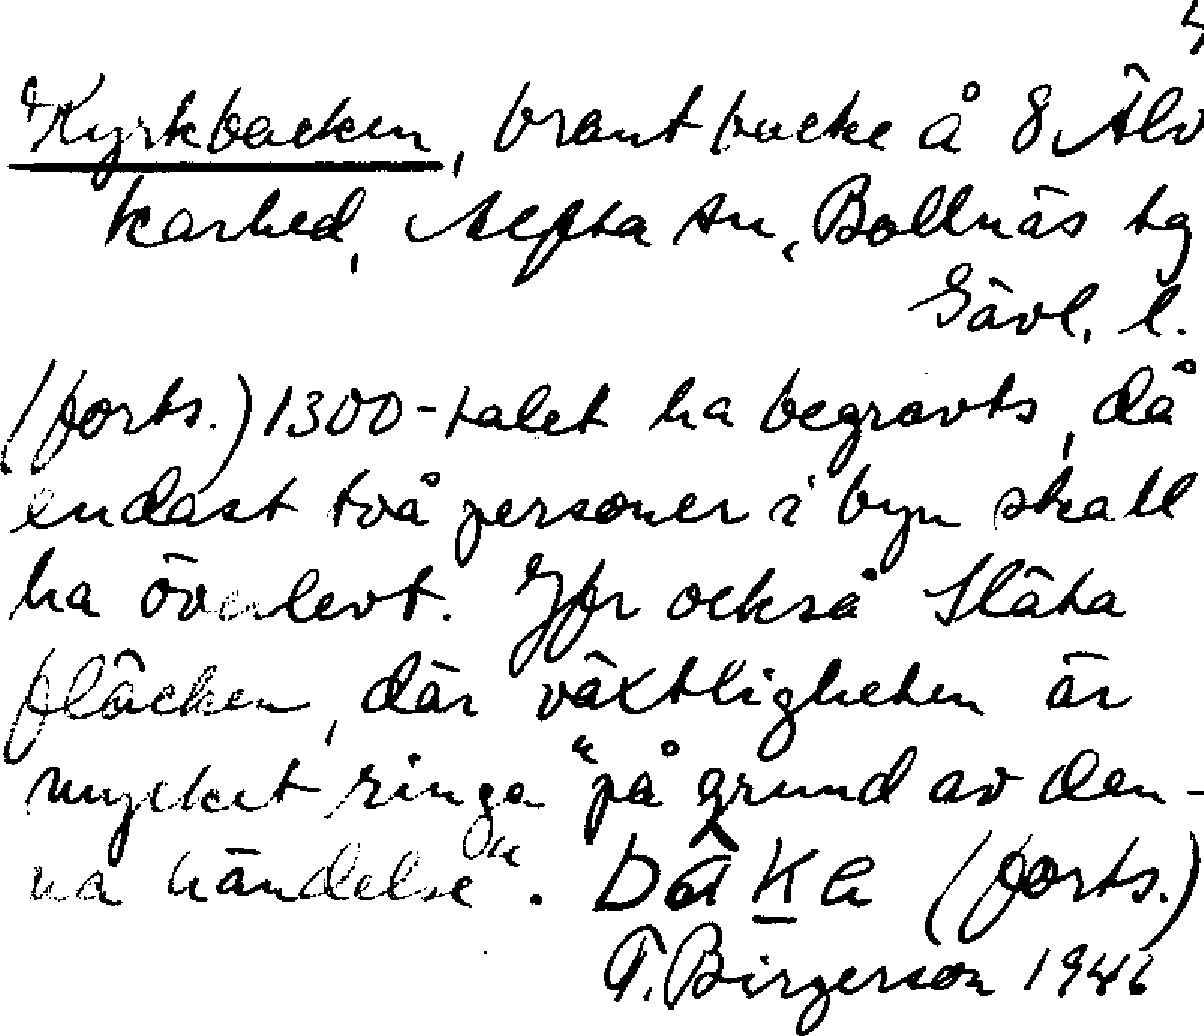 4
Kyrkbacken, brant backe å S. Älv
karhed, Alfta sn, Bollnäs tg
Gävl. l.
(forts.) 1300-talet ha begravts, då
endast två personer i byn skall
ha överlevt. Jfr också Släta
fläcken, där växtligheten är
mycket ringa "på grund av den-
na händelse".
(forts.)
T. Birgerson 1946